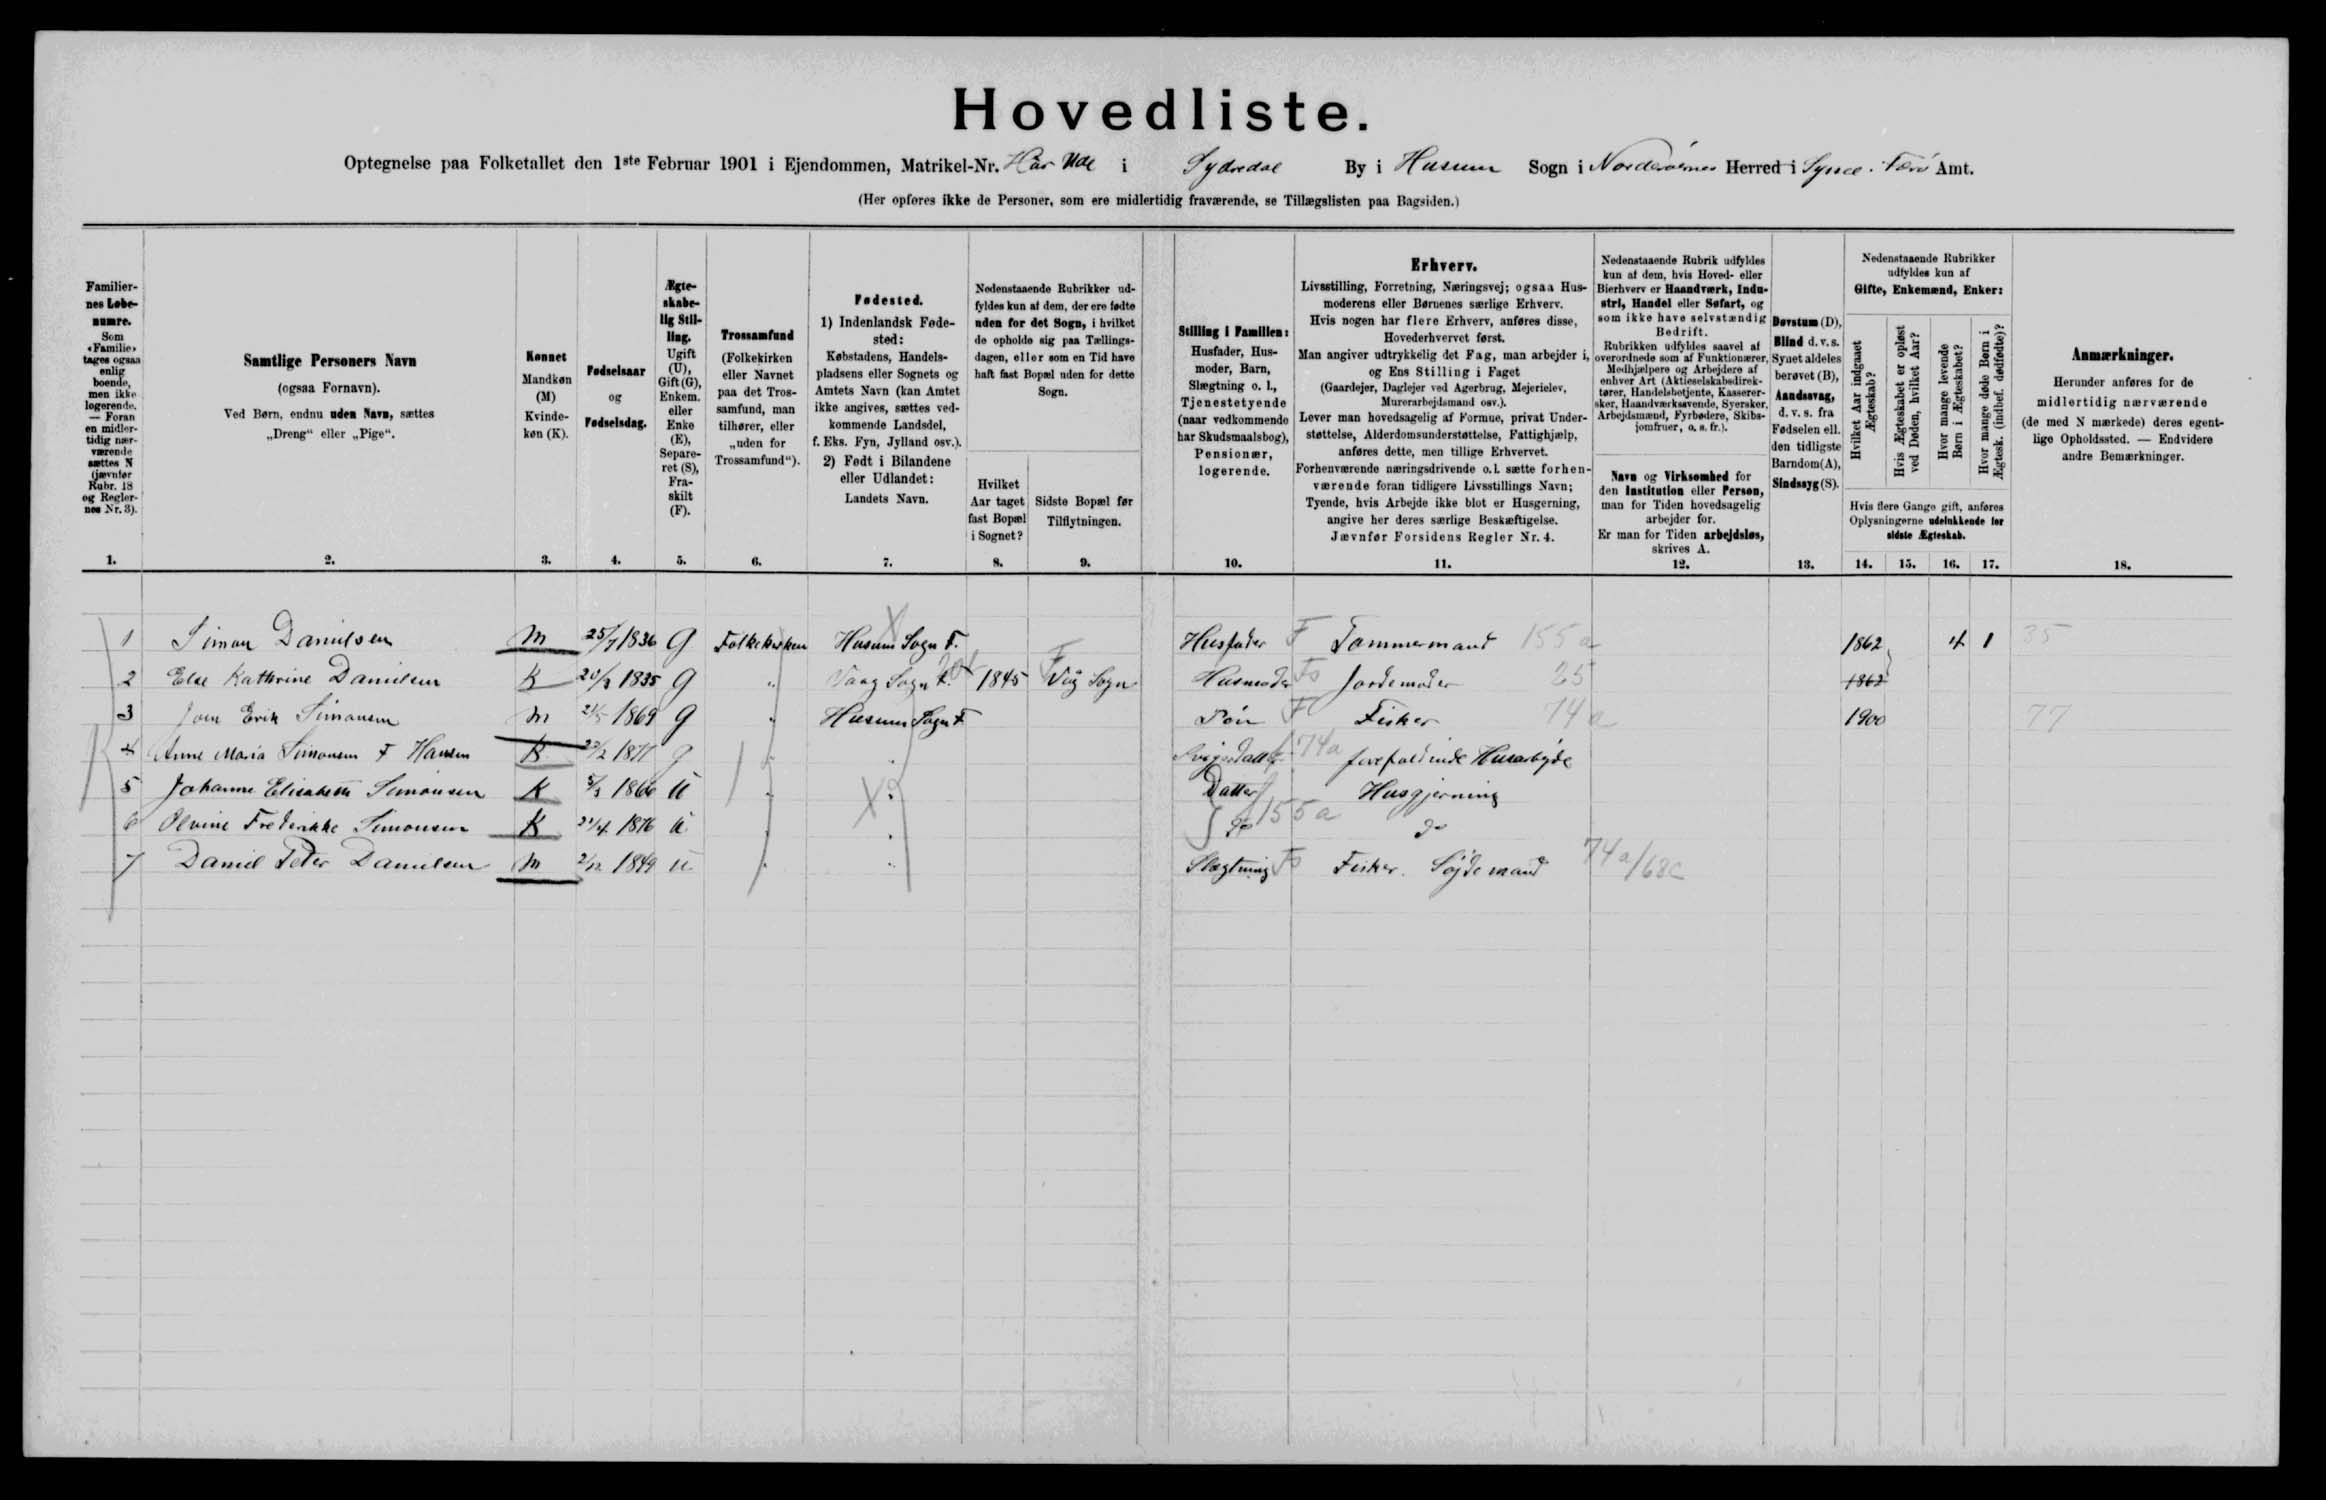 Hovedliste.
Optegnelse paa Folketallet den 1ste Februar 1901 i Ejendommen, Matrikel-Nr. Har Ude i Sydredal By i Husum Sogn i Norderøernes Herred i Syssel. Færø Amt.
(Her opføres ikke de Personer, som ere midlertidig fraværende, se Tillægslisten paa Bagsiden.)
Familier-
nes Løbe-
numre.
Som
«Familie»
tages ogsaa
enlig
boende,
men ikke
logerende.
— Foran
en midler-
tidig nær-
værende
sættes N
(jævnfør
Rubr. 18
og Regler-
nes Nr. 3).
1.
Samtlige Personers Navn
(ogsaa Fornavn).
Ved Børn, endnu uden Navn, sættes
„Dreng“ eller „Pige“.
2.
Kønnet
Mandkøn
(M)
Kvinde-
køn (K).
3.
Fødselsaar
og
Fødselsdag.
4.
Ægte-
skabe-
lig Stil-
ling.
Ugift
(U),
Gift (G),
Enkem.
eller
Enke
(E),
Separe-
ret (S),
Fra-
skilt
(F).
5.
Trossamfund
(Folkekirken
eller Navnet
paa det Tros-
samfund, man
tilhører, eller
„uden for
Trossamfund“).
6.
Fødested.
1) Indenlandsk Føde-
sted:
Købstadens, Handels-
pladsens eller Sognets og
Amtets Navn (kan Amtet
ikke angives, sættes ved-
kommende Landsdel,
f. Eks. Fyn, Jylland osv.).
2) Født i Bilandene
eller Udlandet:
Landets Navn.
7.
Nedenstaaende Rubrikker ud-
fyldes kun af dem, der ere fødte
uden for det Sogn, i hvilket
de opholde sig paa Tællings-
dagen, eller som en Tid have
haft fast Bopæl uden for dette
Sogn.
Hvilket
Aar taget
fast Bopæl
i Sognet?
8.
Sidste Bopæl før
Tilflytningen.
9.
Stilling i Familien:
Husfader, Hus-
moder, Barn,
Slægtning o. l.,
Tjenestetyende
(naar vedkommende
har Skudsmaalsbog),
Pensionær,
logerende.
10.
Erhverv.
Livsstilling, Forretning, Næringsvej; ogsaa Hus-
moderens eller Børnenes særlige Erhverv.
Hvis nogen har flere Erhverv, anføres disse,
Hovederhvervet først.
Man angiver udtrykkelig det Fag, man arbejder i,
og Ens Stilling i Faget
(Gaardejer, Daglejer ved Agerbrug, Mejerielev,
Murerarbejdsmand osv.).
Lever man hovedsagelig af Formue, privat Under-
støttelse, Alderdomsunderstøttelse, Fattighjælp,
anføres dette, men tillige Erhvervet.
Forhenværende næringsdrivende o. l. sætte forhen-
værende foran tidligere Livsstillings Navn;
Tyende, hvis Arbejde ikke blot er Husgerning,
angive her deres særlige Beskæftigelse.
Jævnfør Forsidens Regler Nr. 4.
11.
Nedenstaaende Rubrik udfyldes
kun af dem, hvis Hoved- eller
Bierhverv er Haandværk, Indu-
stri, Handel eller Søfart, og
som ikke have selvstændig
Bedrift.
Rubrikken udfyldes saavel af
overordnede som af Funktionærer,
Medhjælpere og Arbejdere af
enhver Art (Aktieselskabsdirek-
tører, Handelsbetjente, Kasserer-
sker, Haandværkssvende, Syersker,
Arbejdsmænd, Fyrbødere, Skibs-
jomfruer, o. s. fr.).
Navn og Virksomhed for
den Institution eller Person,
man for Tiden hovedsagelig
arbejder for.
Er man for Tiden arbejdsløs,
skrives A.
12.
Døvstum (D),
Blind d. v. s.
Synet aldeles
berøvet (B),
Aandssvag,
d. v. s. fra
Fødselen ell.
den tidligste
Barndom (A),
Sindssyg (S).
13.
Nedenstaaende Rubrikker
udfyldes kun af
Gifte, Enkemænd, Enker:
Hvilket Aar indgaaet
Ægteskab?
Hvis Ægteskabet er opløst
ved Døden, hvilket Aar?
Hvor mange levende
Børn i Ægteskabet?
Hvor mange døde Børn i
Ægtesk. (indbef. dødfødte)?
Hvis flere Gange gift, anføres
Oplysningerne udelukkende for
sidste Ægteskab.
14. 15. 16. 17.
Anmærkninger.
Herunder anføres for de
midlertidig nærværende
(de med N mærkede) deres egent-
lige Opholdssted. — Endvidere
andre Bemærkninger.
18.
1 Simon Danielsen M 25/7 1836 G Folkekirken Husum Sogn F. Husfader F Tømmermand 155 a 1862 4 1 35
2 Else Kathrine Danielsen K 20/3 1835 G " Vaag Sogn F. 1845 Vaag Sogn Husmoder Fo Jordemoder 25 1862
3 Joen Erik Simonsen M 21/5 1869 G " Husum Sogn F Søn F Fisker 74 a 1900 77
4 Anne Maria Simonsen F Hansen K 23/2 1871 G " " Svigerdatter 74a forefaldende Husarbejde
5 Johanne Elisabeth Simonsen K 5/3 1866 U " " Datter Husgjerning
6 Olvine Frederikke Simonsen K 21/4 1876 U " " do 155 a do
7 Daniel Peter Danielsen M 2/12 1849 U " " Slægtning Fo Fisker. Søjdemand 74 a/68c